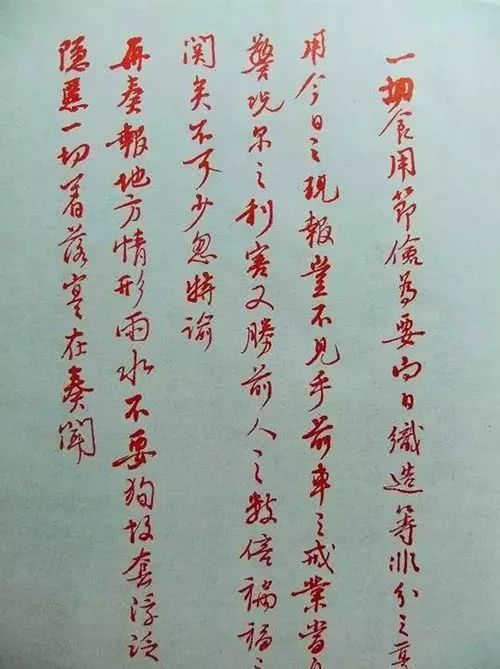 一切食用節儉為要向日織造等非分之
用今日之現報豈不見乎前車之戒業當
警况尔之利害又勝前人之數倍禍福之
関矣不可少忽特諭
再奏報地方情形雨水不要狥故套浮泛
隱匿一切着落寔在奏聞